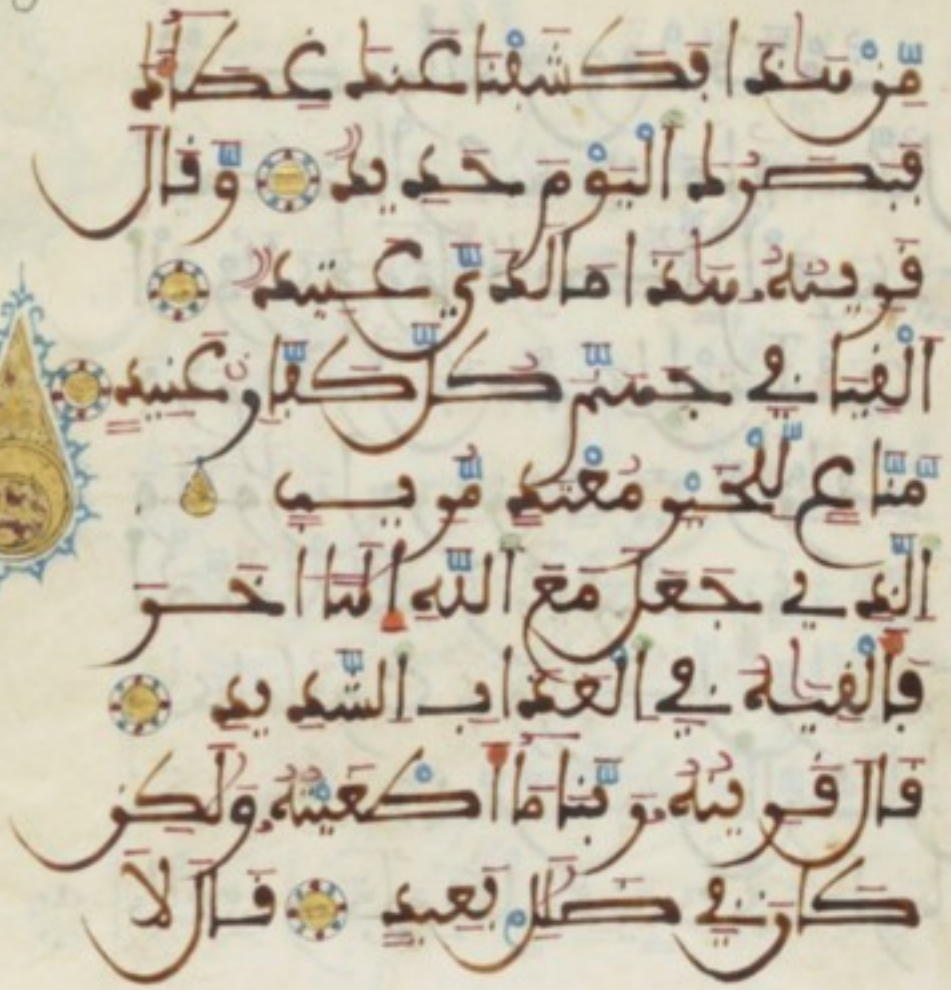 مِّنْ هَٰذَا فَكَشَفْنَا عَنكَ غِطَآءَكَ
فَبَصَرُكَ ٱلْيَوْمَ حَدِيدٌ وَّقَالَ
قَرِينُهُۥ هَٰذَا مَا لَدَيَّ عَتِيدٌ
أَلْقِيَا فِي جَهَنَّمَ كُلَّ كَفَّارٍ عَنِيدٍ
مَّنَّاعٍ لِّلْخَيْرِ مُعْتَدٍ مُّرِيبٍ
ٱلَّذِي جَعَلَ مَعَ ٱللَّهِ إِلَٰهًا ءَاخَرَ
فَأَلْقِيَٰهُ فِي ٱلْعَذَابِ ٱلشَّدِيدِ
قَالَ قَرِينُهُۥ رَبَّنَا مَآ أَطْغَيْتُهُۥ وَلَٰكِن
كَانَ فِي ضَلَٰلٍ بَعِيدٍ قَالَ لَا